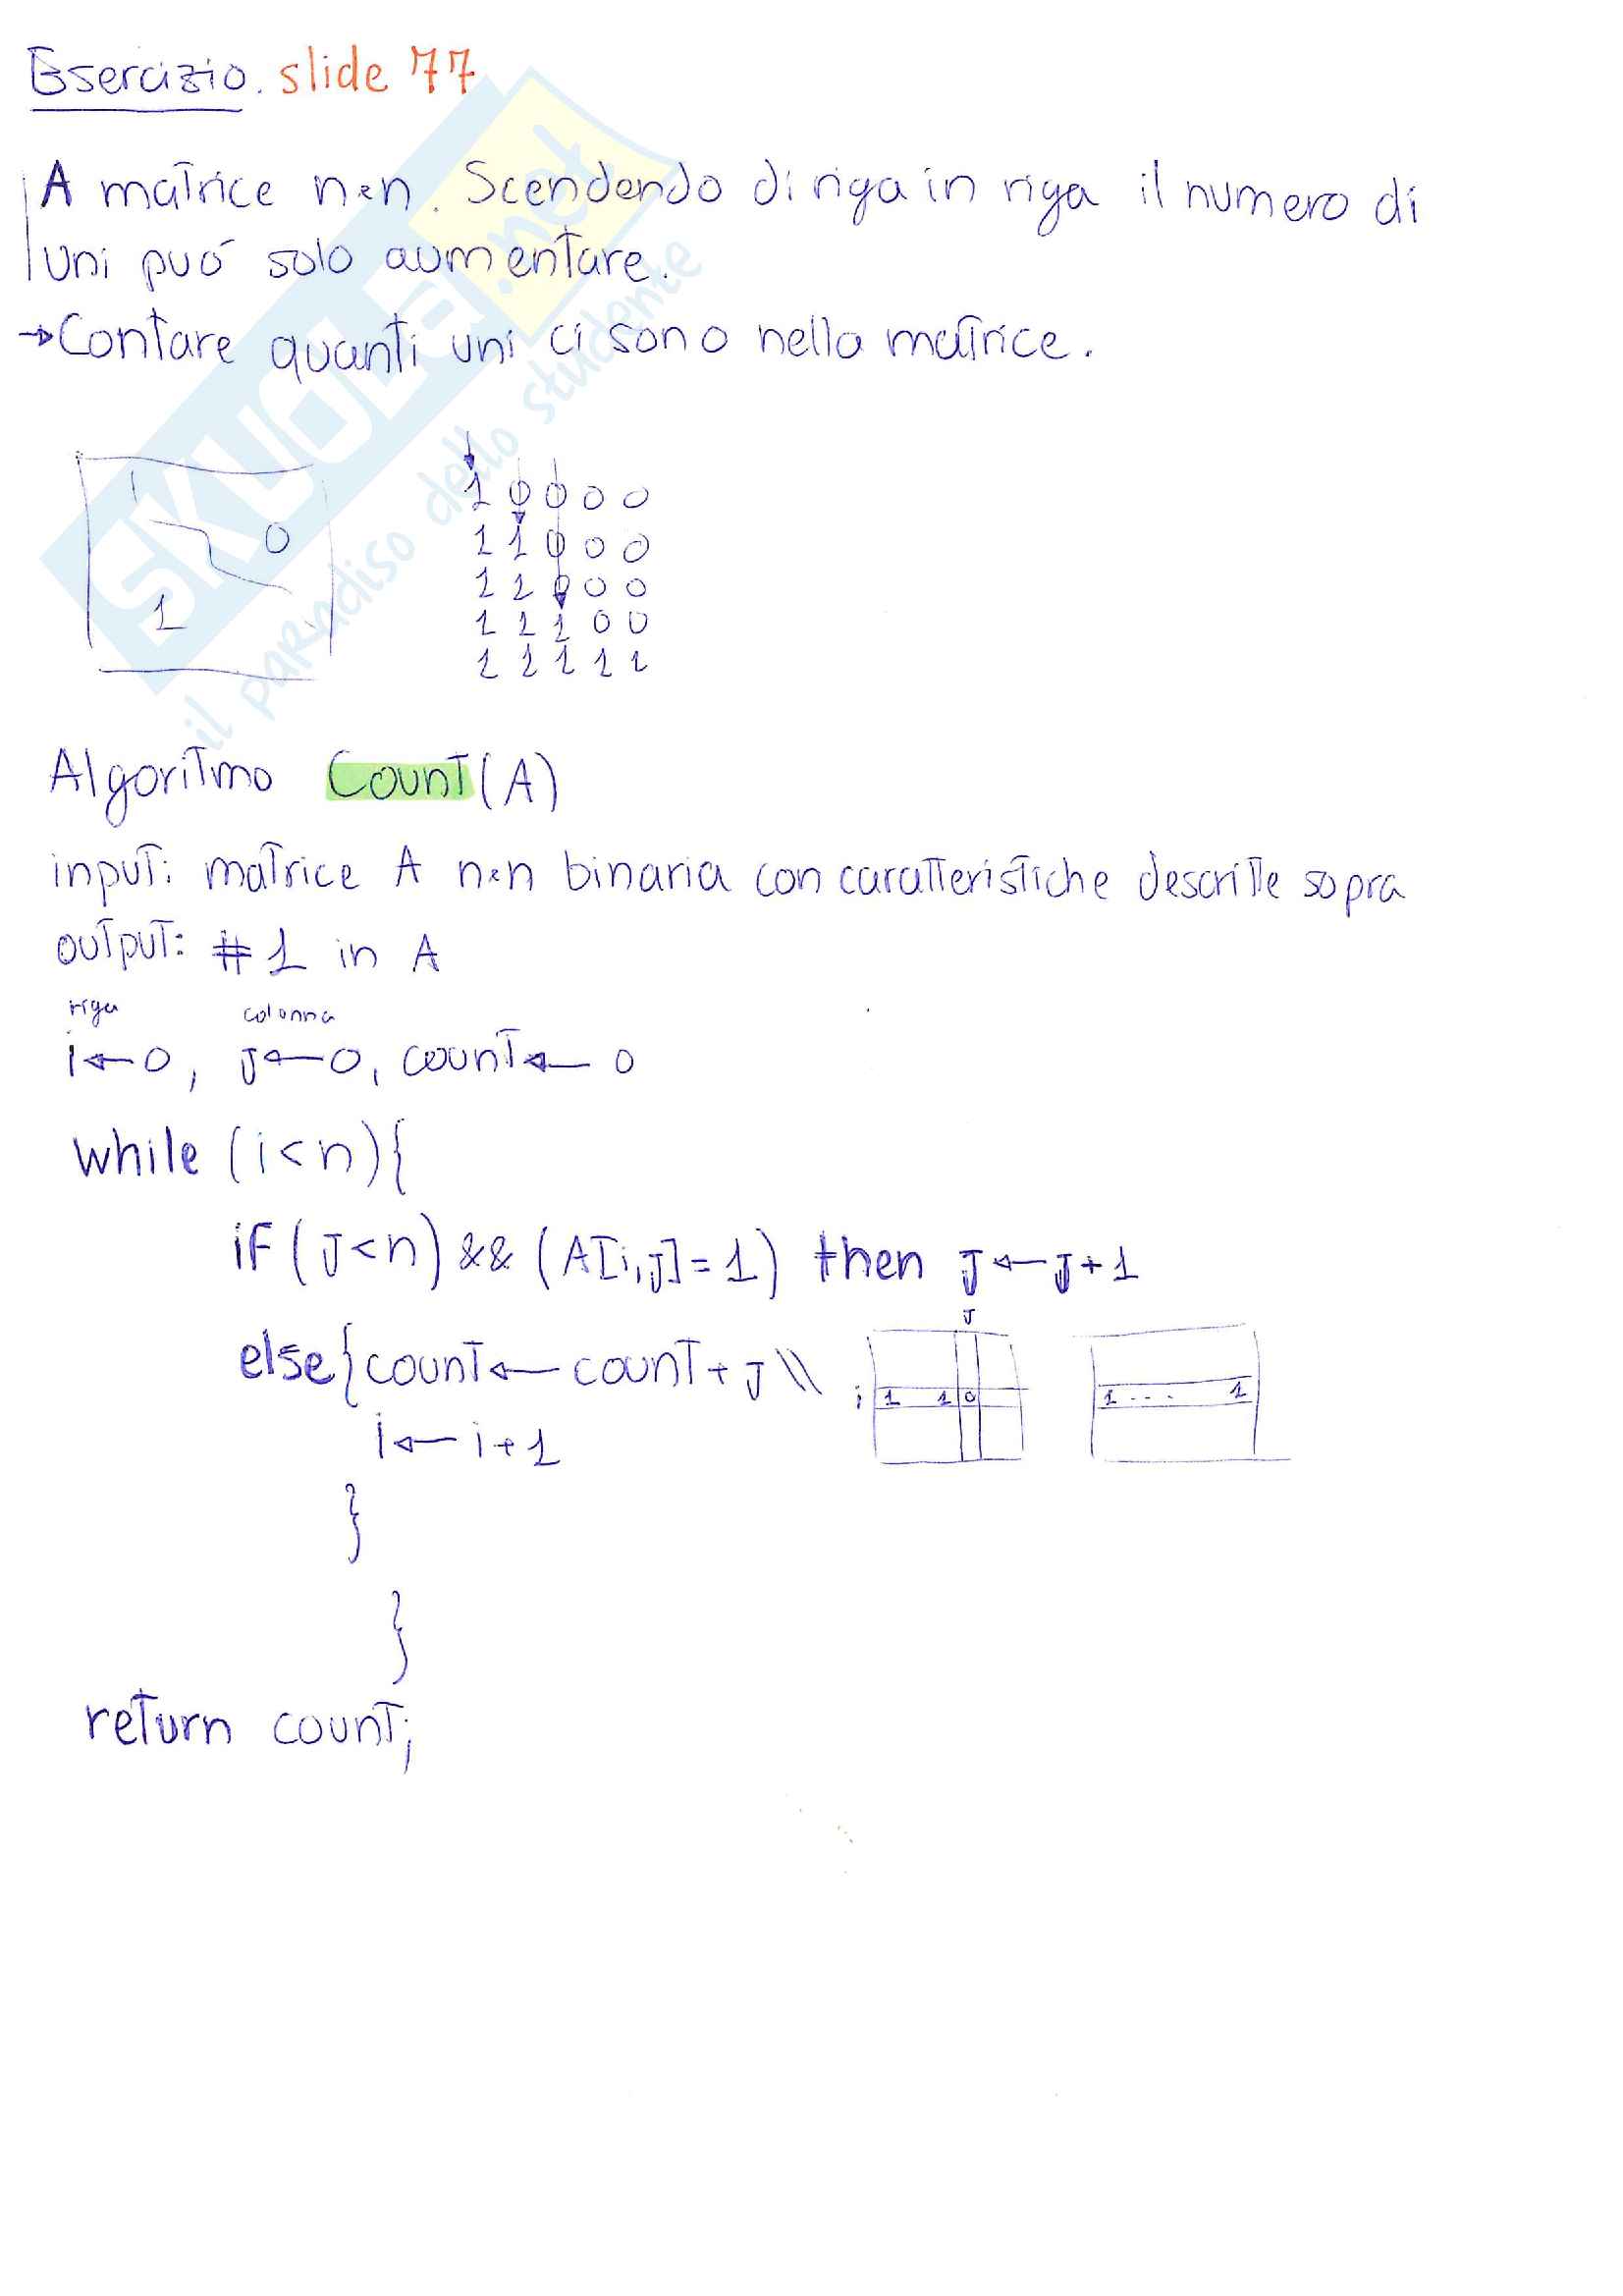 Esercizio. slide 77
A matrice n×n. Scendendo di riga in riga il numero di
uni può solo aumentare.
→ Contare quanti uni ci sono nella matrice.
1 0 0 0 0
1 1 0 0 0
0
1 1 0 0 0
1
1 1 1 0 0
1 1 1 1 1
SKUOLA.net
il paradiso dello studente
Algoritmo Count(A)
input: matrice A n×n binaria con caratteristiche descritte sopra
output: #1 in A
riga colonna
i←0, J←0, count← 0
while (i<n){
if (J<n) && (A[i,J]=1) then J←J+1
J
else{count←count+J \\
i 1 1 0
1 ... 1
i←i+1
}
}
return count;